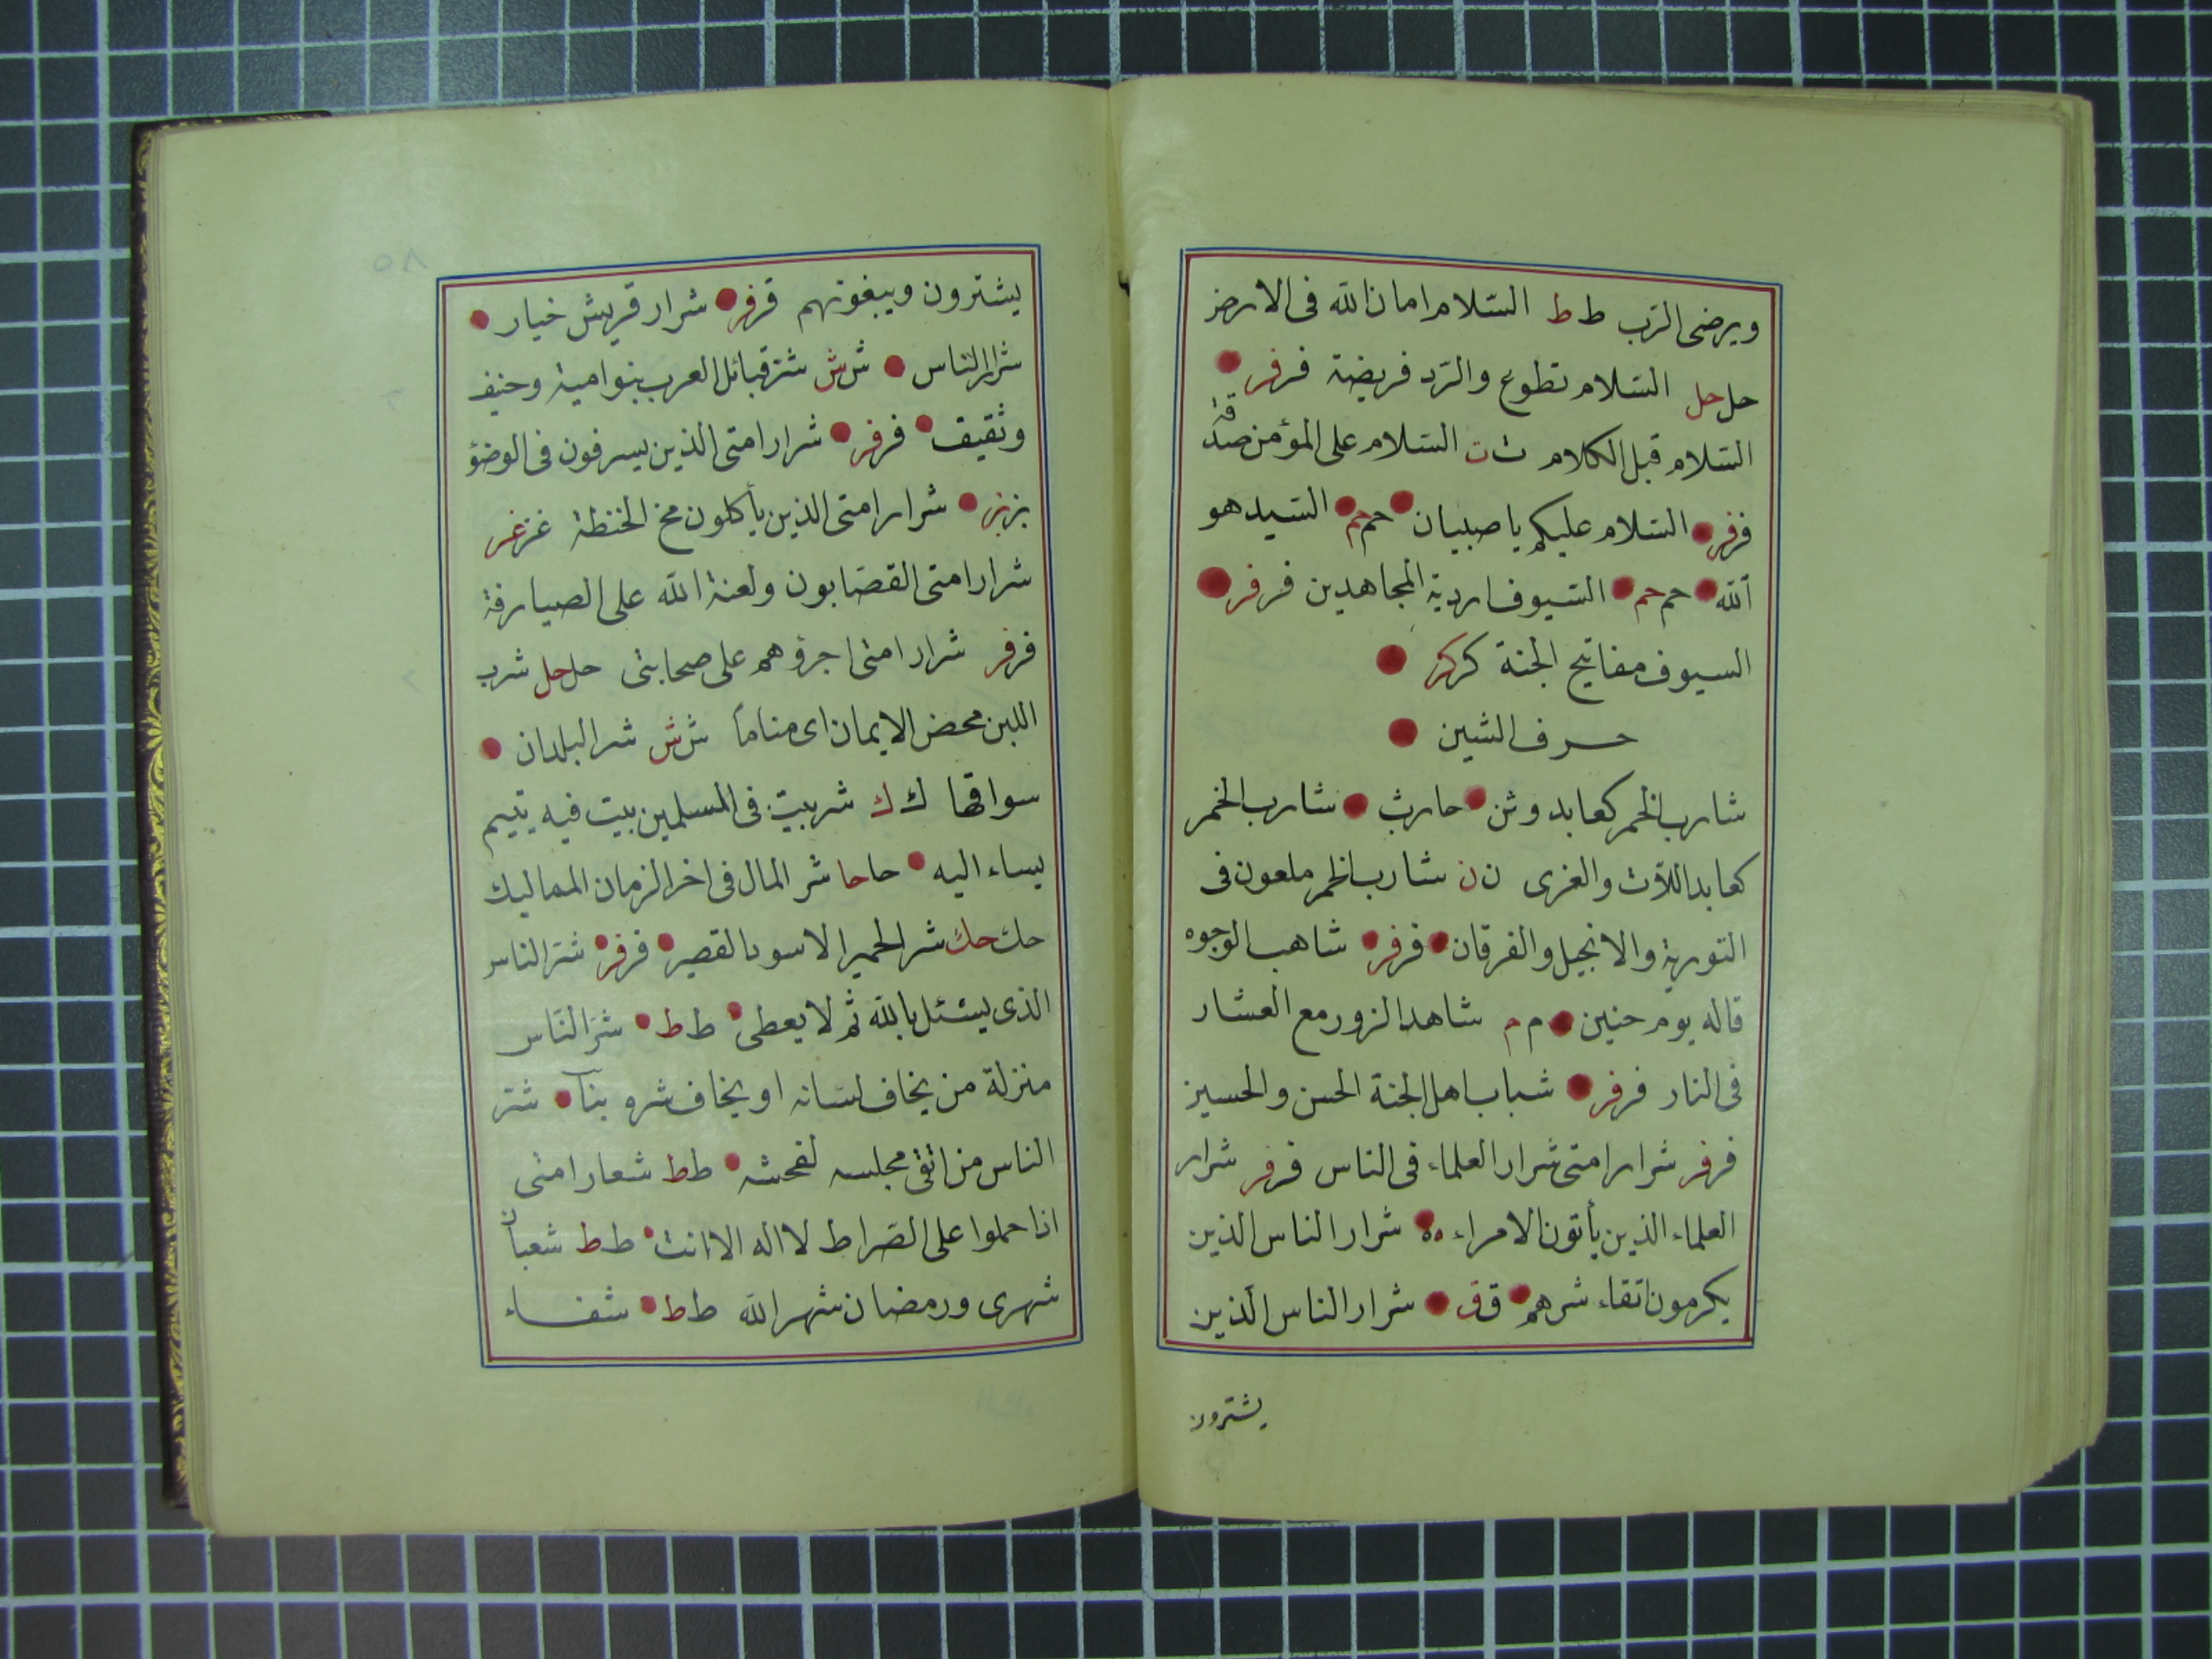 ويرضى الرّب ط ط السّلام امان الله فى الارض
حل حل السّلام تطوع والرّد فريضة فر فر
السّلام قبل الكلام ت ت السّلام على المؤمن صدقة
فر فر السّلام عليكم يا صبيان حم حم السّيد هو
الله حم حم السّيوف اردية المجاهدين فر فر
السيوف مفاتيح الجنة كر كر
حرف الشين
شارب الخمر كعابد وثن حارث شارب الخمر
كعابد اللاّت والعزى ن ن شارب الخمر ملعون فى
التورية والانجيل والفرقان فر فر شاهب الوجوه
قاله يوم حنين م م شاهد الزور مع العشار
فى النار فر فر شباب اهل الجنة الحسن والحسين
فر فر شرار امتى شرار العلماء فى الناس فر فر شرار
العلماء الذين يأتون الامراء ه ه شرار الناس الذين
يكرمون اتقاء شرهم ق ق شرار الناس الّذين
يشترون
يشترون ويبغونهم قر فر شرار قريش خيار
شرار النّاس ش ش شرّ قبائل العرب بنو امية وحنيف
وثقيف فر فر شرار امتى الذين يسرفون فى الوضؤ
بز بز شرار امتى الذين يأكلون مخ الحنطة غر غر
شرار امتى القصّابون ولعنة الله على الصيارفة
فر فر شرار امتى اجرؤهم على صحابتى حل حل شرب
اللبن محض الايمان اى مناماً ش ش شر البلدان
سواقها ك ك شر بيت فى المسلمين بيت فيه يتيم
يساء اليه حا حا شر المال فى اخر الزمان المماليك
حك حك شر الحمير الاسود القصير فر فر شرّ الناس
الذى يسئل بالله ثم لا يعطى ط ط شرّ النّاس
منزلة من يخاف لسانه او يخاف شره بنآ شرّ
الناس من اتقى مجلسه لفحشه ط ط شعار امتى
اذا حملوا على الصّراط لا اله الا انت ط ط شعبان
شهرى ورمضان شهر الله ط ط شفاء